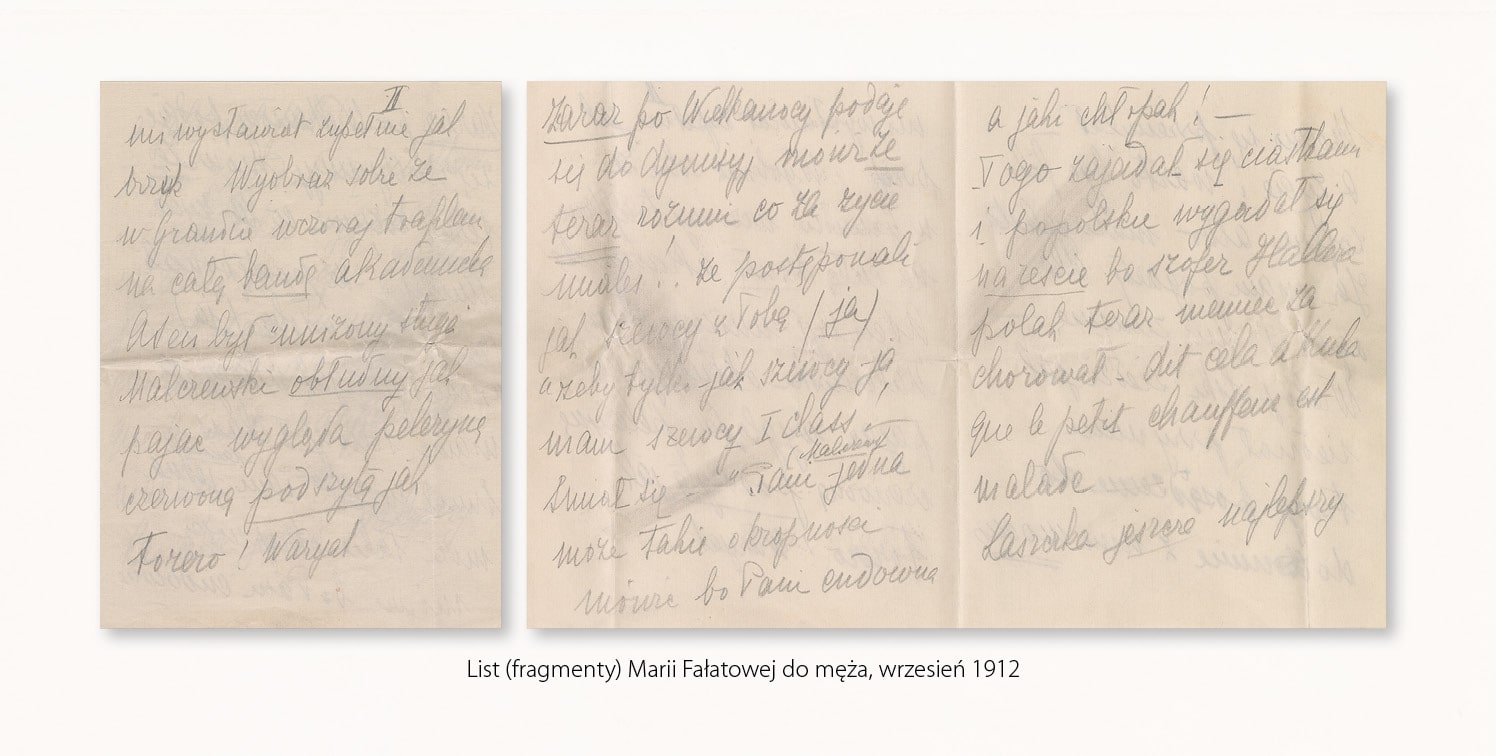 II
mi wystawiał zupełnie jak
bzyk Wyobraź sobie że
w Grandzie wczoraj trafiłam
na całą bandę akademicką
Asen był uniżony sługa
Malczewski obłudny jak
pajac wygląda peleryną
czerwoną podszytą jak
Torero! Waryat
Zaraz po Wielkanocy podaje
się do dymisyj mówi że
teraz rozumi co za życie
miałeś!! że postępowali
jak szewcy z Tobą (ja)
a żeby tylko jak szewcy - ja
mam szewcy I class
(Malczewski)
Śmiał się - "Pani jedna
może takie okropności
mówić bo Pani cudowna
a jaki chłopak! —
Togo zajadał się ciastkami
i popolsku wygadał się
nareście bo szofer Hallera
polak teraz niemiec za
chorował - dit cela à Kuba
que le petit chauffeur est
malade
Laszczka jeszcze najlepszy
List (fragmenty) Marii Fałatowej do męża, wrzesień 1912